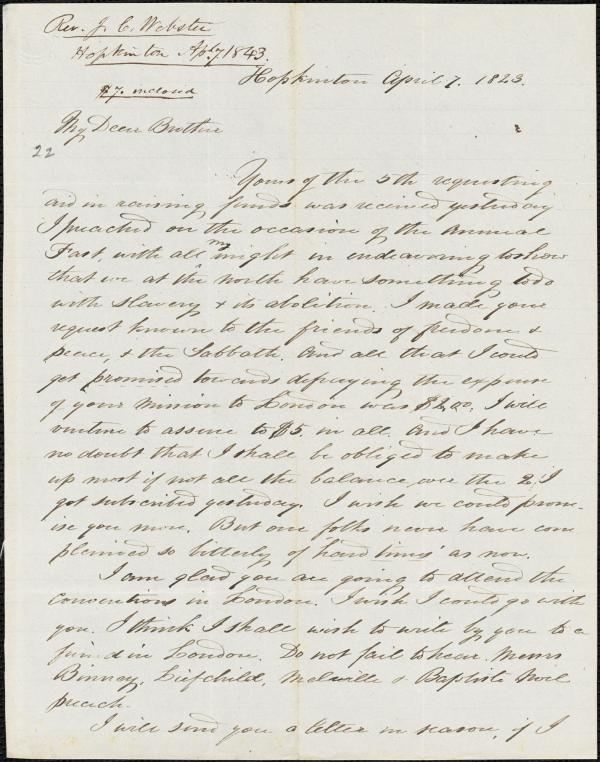 Rev. J. C. Webster
Hopkinton Apl. 7. 1843.
$7. enclosed
Hopkinton April 7. 1823.
My Dear Brother
22
Yours of the 5th requesting
aid in raising funds was received yesterday
I preached on the occasion of the Annual
Fast, with all my might in endeavoring to show
that we at the north have something to do
with slavery & its abolition. I made your
request known to the friends of freedom &
peace, & the Sabbath. And all that I could
get promised towards defraying the expense
of your mission to London was $2,00. I will
venture to assure to $5. in all. And I have
no doubt that I shall be obliged to make
up most if not all the balance, over the 2, I
got subscribed yesterday. I wish we could prom-
ise you more. But our folks never have com
plained so bitterly of 'hard times' as now.
I am glad you are going to attend the
conventions in London. I wish I could go with
you. I think I shall wish to write by you to a
friend in London. Do not fail to hear Messrs
Binney, Leifchild, Melville & Baptist Noel
preach.
I will send you a letter in season, if I